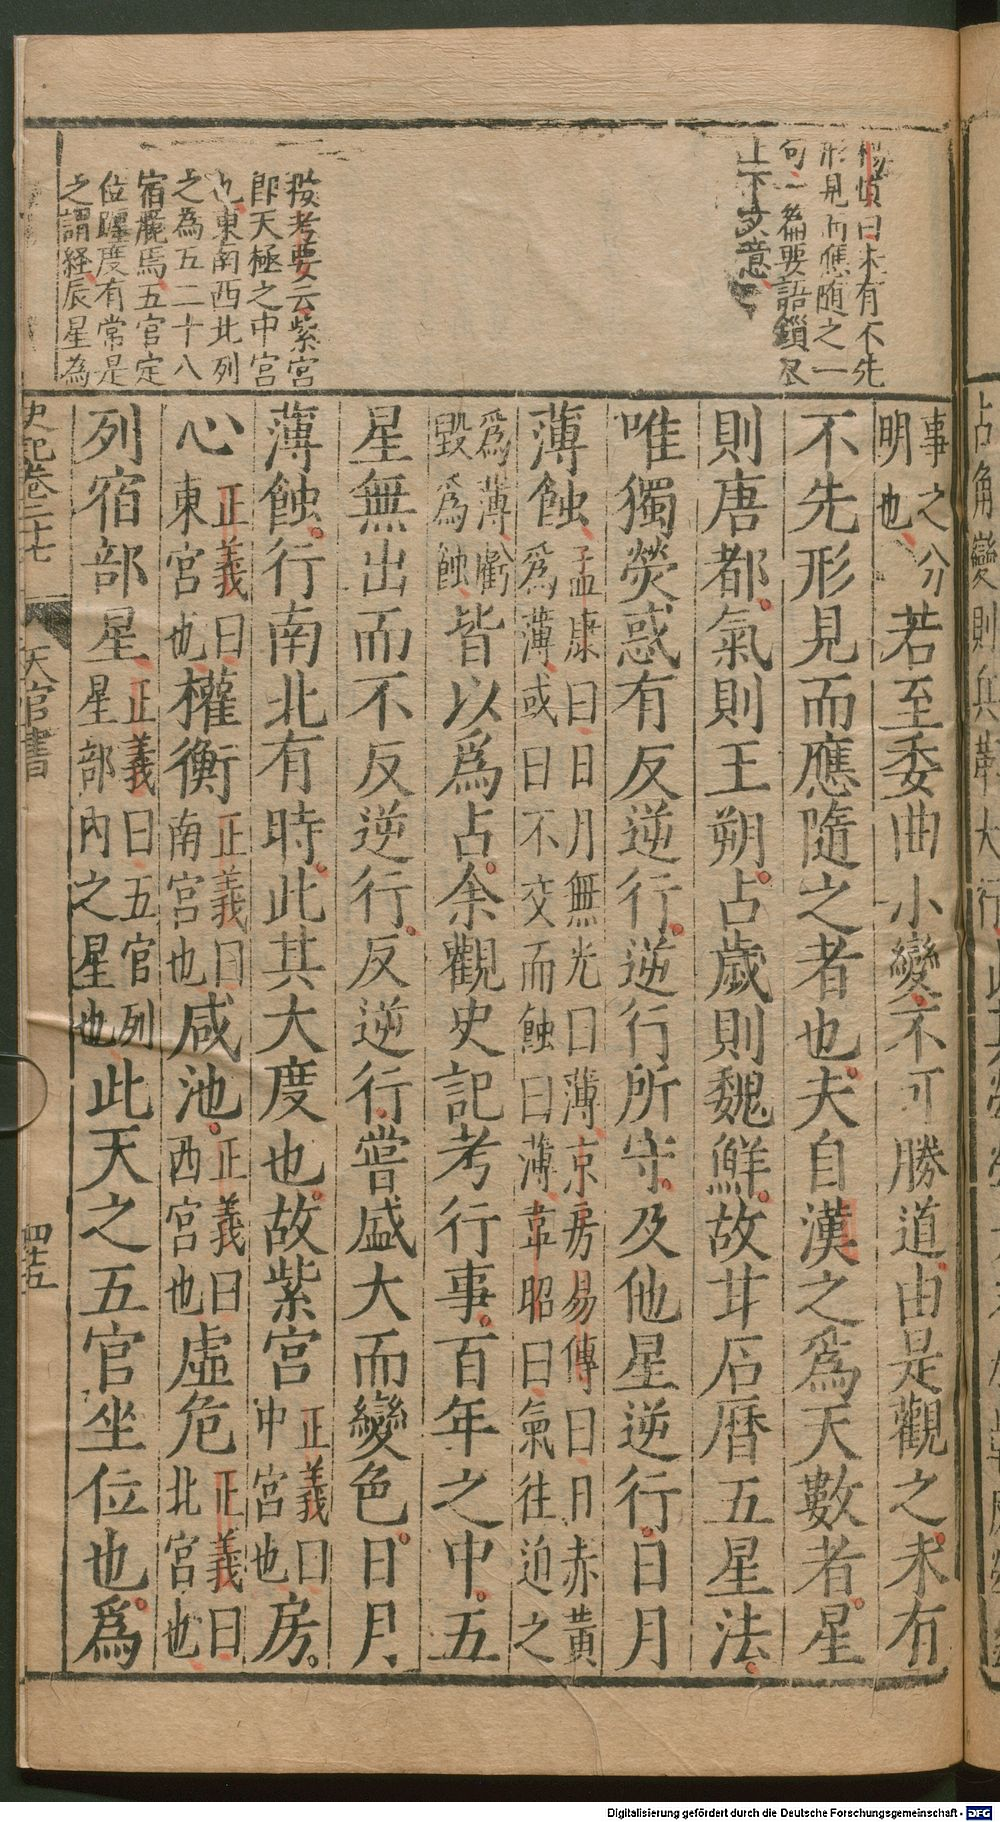 楊慎曰未有不先
形見而應隨之一
句一篇要語鎖盡
上下文意
按考要云紫宮
即天極之中宮
也東南西北列
之為五二十八
宿麗焉五官定
位躔度有常是
之謂経辰星為
事之分
明也若至委曲小變不可勝道由是觀之未有
不先形見而應隨之者也夫自漢之爲天數者星
則唐都氣則王朔占歲則魏鮮故甘石曆五星法
唯獨熒惑有反逆行逆行所守及他星逆行日月
薄蝕孟康曰日月無光曰薄京房易傳曰日赤黃
爲薄或曰不交而蝕曰薄韋昭曰氣往迫之
爲薄虧
毀爲蝕皆以爲占余觀史記考行事百年之中五
星無出而不反逆行反逆行嘗盛大而變色日月
薄蝕行南北有時此其大度也故紫宮正義曰中宮也房
心正義曰東宮也權衡正義曰南宮也咸池正義曰西宮也虛危正義曰北宮也
列宿部星正義曰五官列星部內之星也此天之五官坐位也爲
史記卷二十七
天官書
四十五
占角變則兵
Digitalisierung gefördert durch die Deutsche Forschungsgemeinschaft - DFG